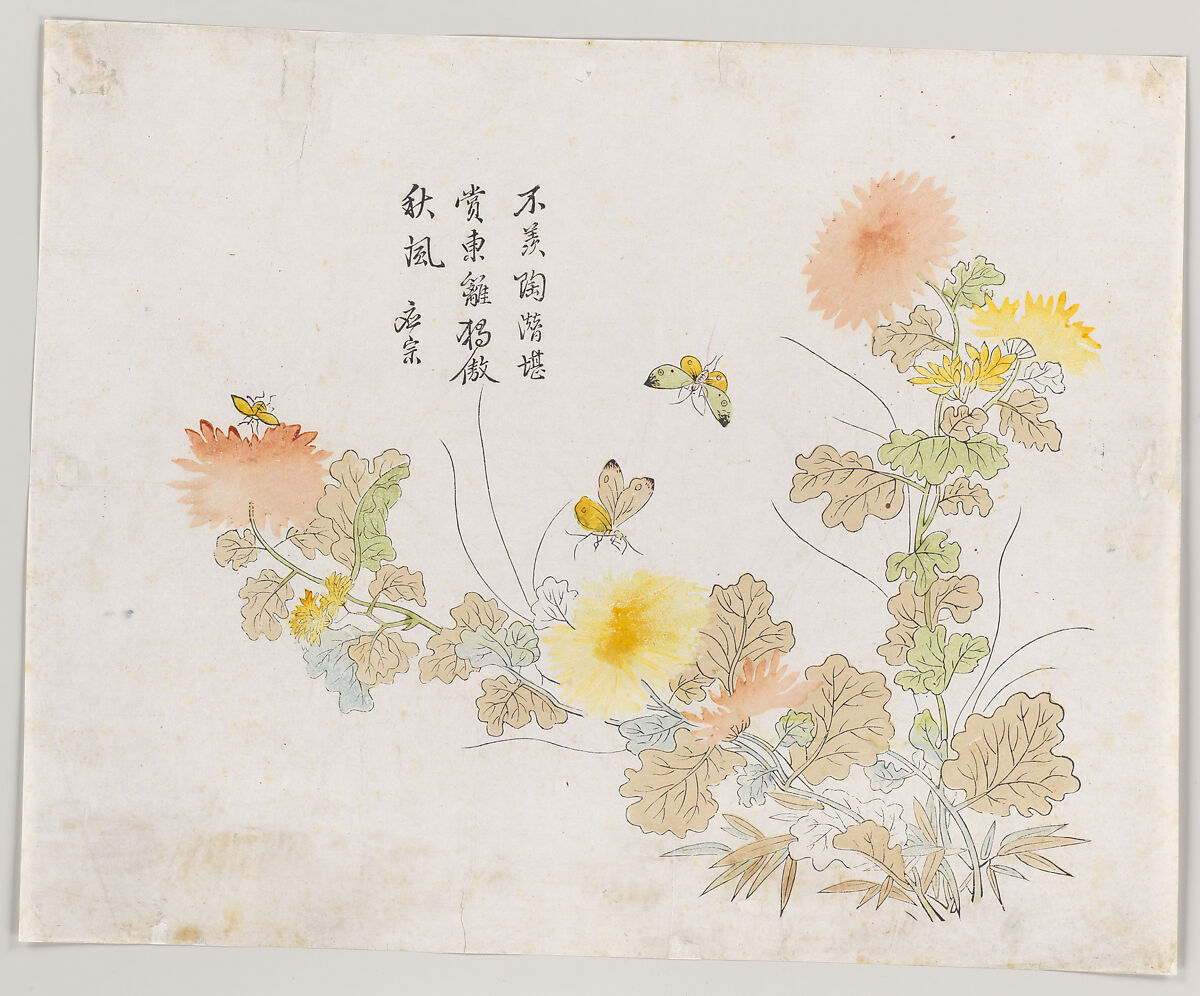 不羨陶潛堪
賞東籬獨傲
秋風 应宗